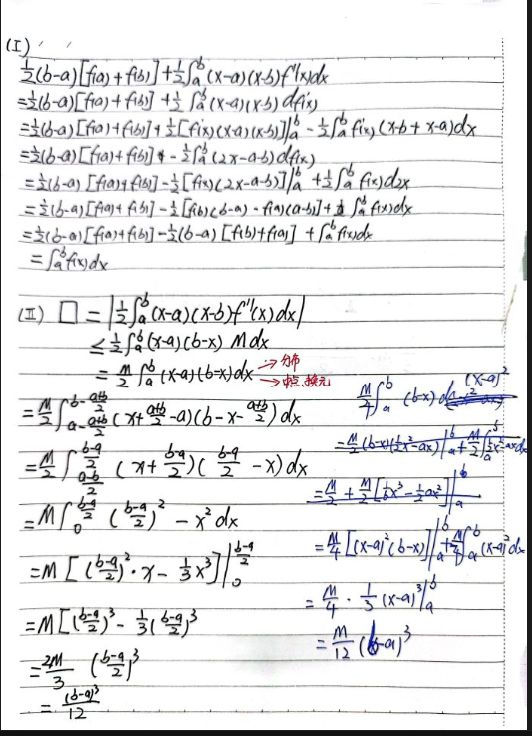 (I)
½(b-a)[f(a)+f(b)]+½∫ₐᵇ(x-a)(x-b)f''(x)dx
=½(b-a)[f(a)+f(b)]+½∫ₐᵇ(x-a)(x-b)df'(x)
=½(b-a)[f(a)+f(b)]+½[f'(x)(x-a)(x-b)]|ₐᵇ-½∫ₐᵇf'(x)(x-b+x-a)dx
=½(b-a)[f(a)+f(b)]-½∫ₐᵇ(2x-a-b)df(x)
=½(b-a)[f(a)+f(b)]-½[f(x)(2x-a-b)]|ₐᵇ+½∫ₐᵇf(x)d2x
=½(b-a)[f(a)+f(b)]-½[f(b)(b-a)-f(a)(a-b)]+∫ₐᵇf(x)dx
=½(b-a)[f(a)+f(b)]-½(b-a)[f(b)+f(a)]+∫ₐᵇf(x)dx
=∫ₐᵇf(x)dx
(II) □=|½∫ₐᵇ(x-a)(x-b)f''(x)dx|
≤½∫ₐᵇ(x-a)(b-x)Mdx
=M/2∫ₐᵇ(x-a)(b-x)dx
→分布
→中点、换元
=M/2∫_{a-(a+b)/2}^{b-(a+b)/2}(x+(a+b)/2-a)(b-x-(a+b)/2)dx
=M/2∫_{(a-b)/2}^{(b-a)/2}(x+(b-a)/2)((b-a)/2-x)dx
=M∫₀^{(b-a)/2}((b-a)/2)²-x²dx
=M[((b-a)/2)²·x-⅓x³]|₀^{(b-a)/2}
=M[((b-a)/2)³-⅓((b-a)/2)³]
=2M/3((b-a)/2)³
=(b-a)³/12
M/4∫ₐᵇ(b-x)d(x-a)²
=M/2(b-x)(½x²-ax)|ₐᵇ+M/2∫ₐᵇ½x²-axdx
=M/2+M/2[⅙x³-½ax²]|ₐᵇ
=M/4[(x-a)²(b-x)]|ₐᵇ+M/4∫ₐᵇ(x-a)²dx
=M/4·⅓(x-a)³|ₐᵇ
=M/12(b-a)³